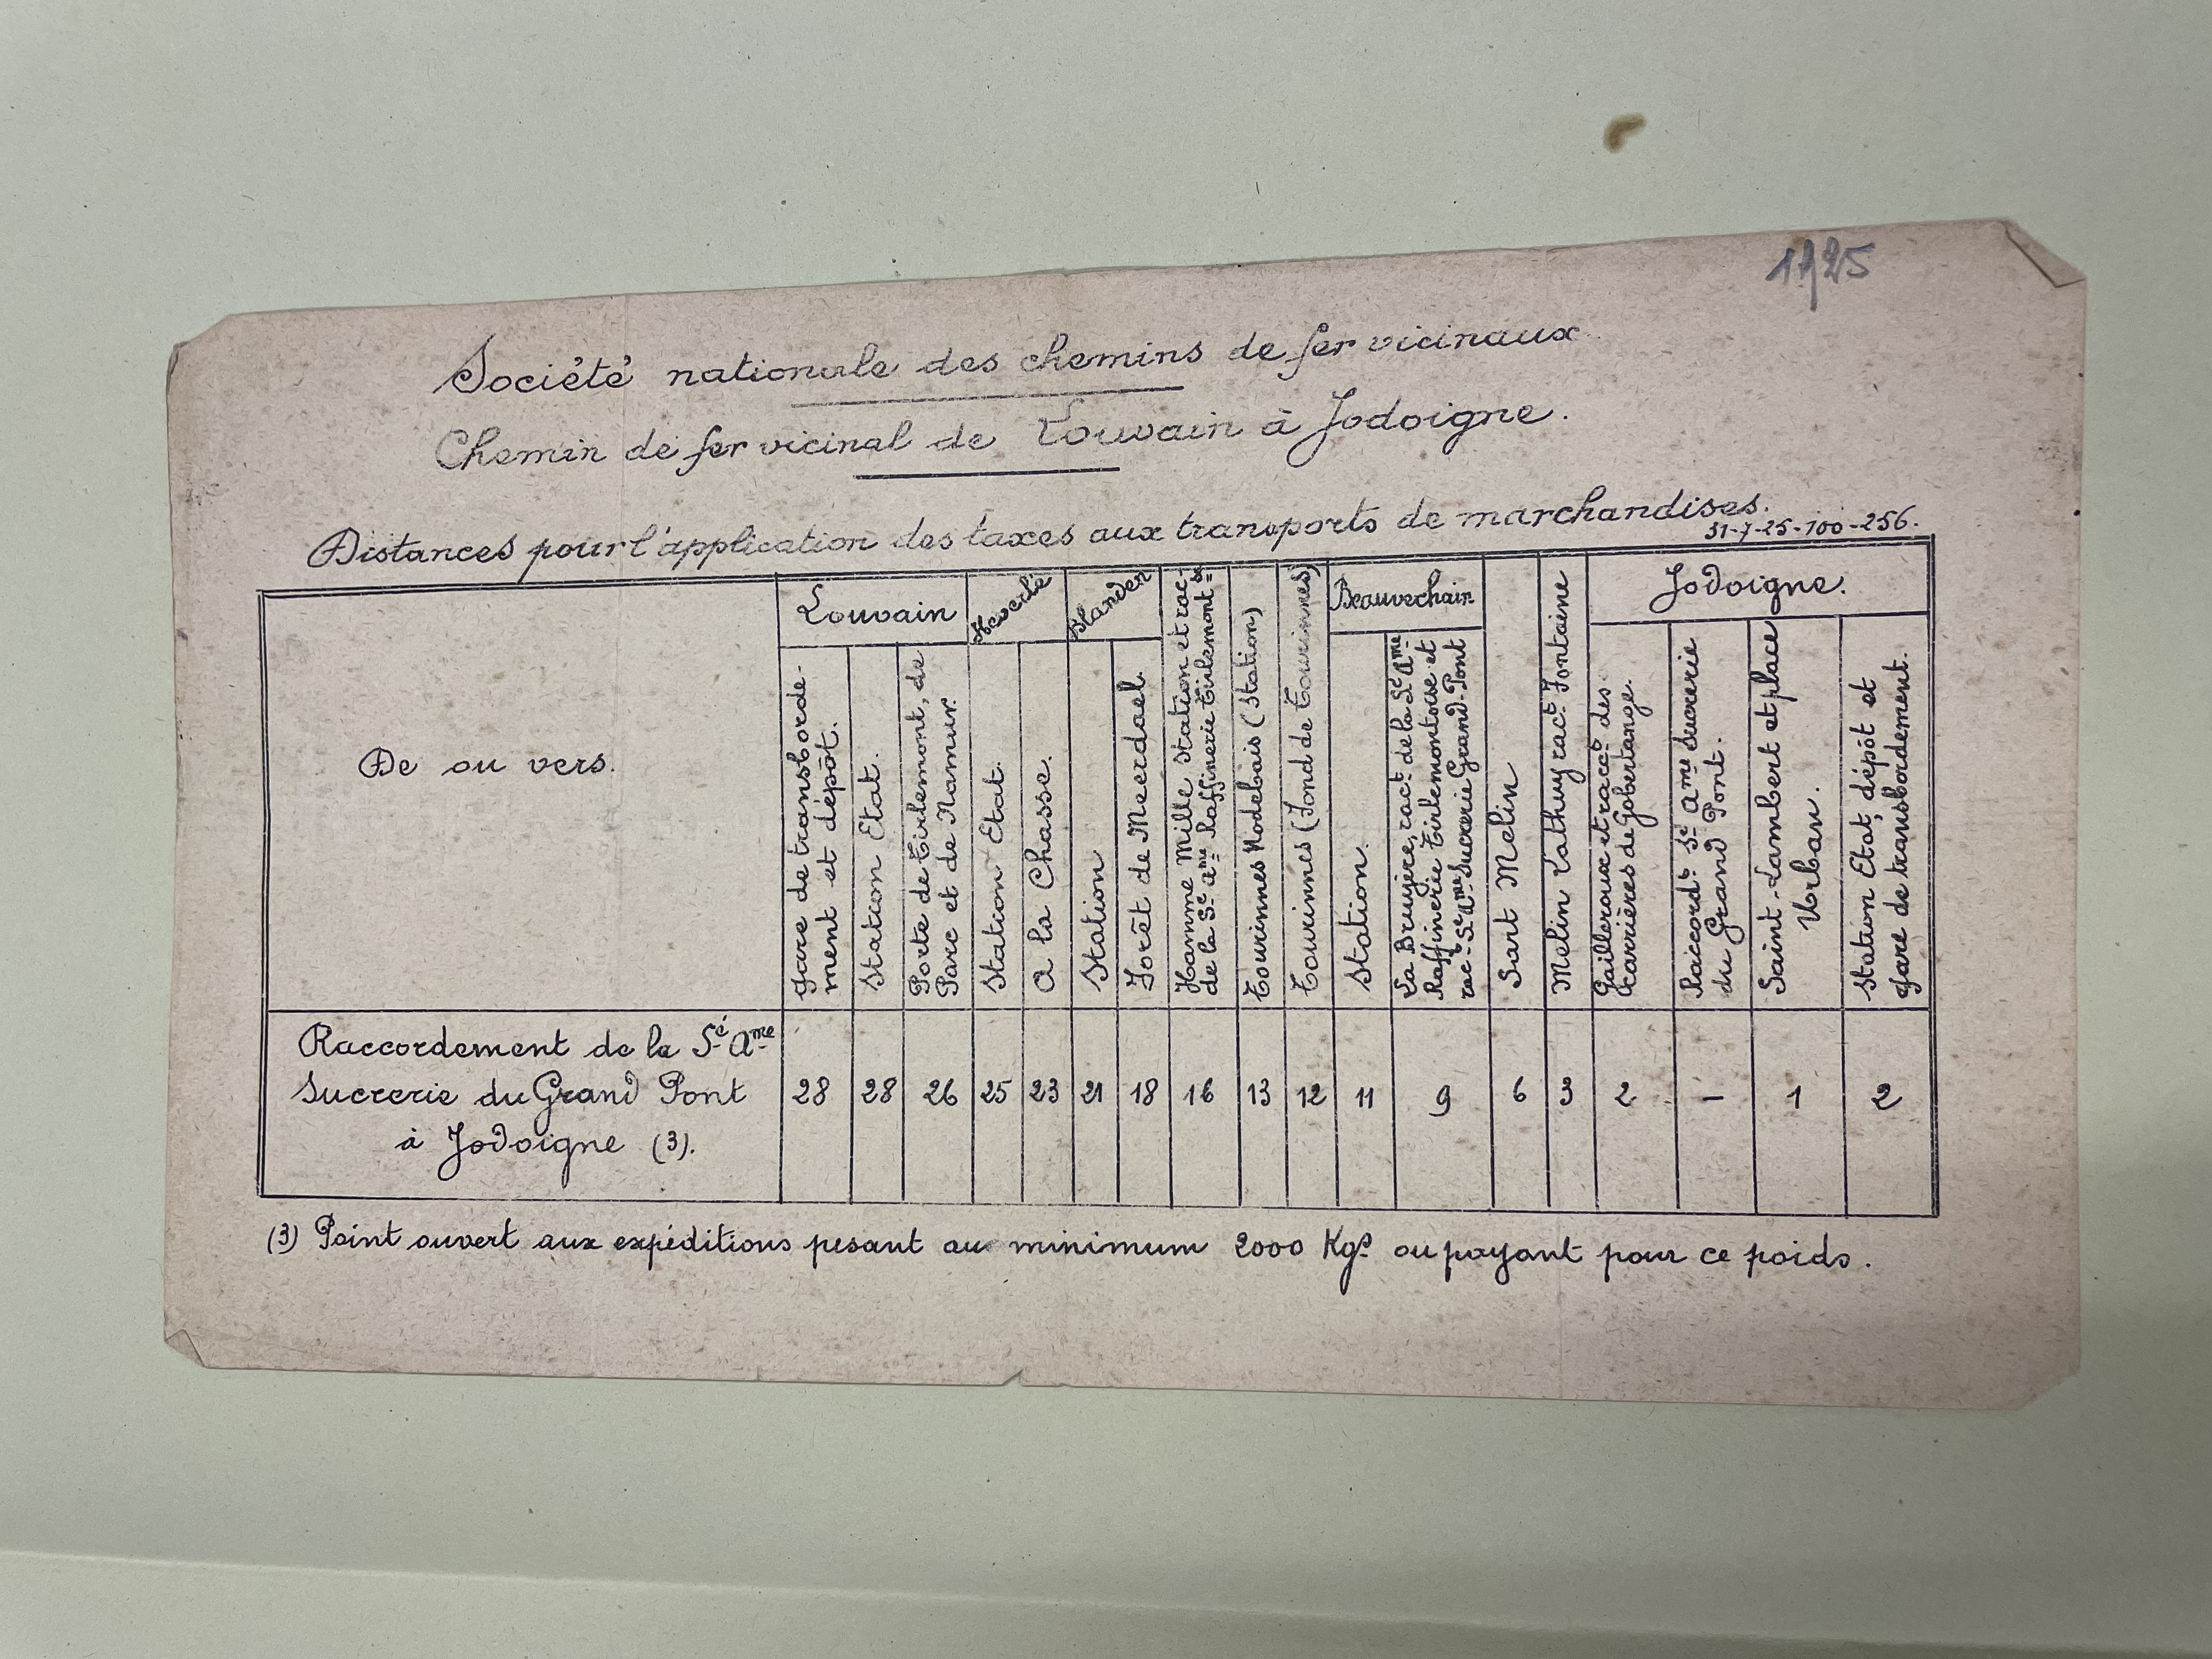 1925
Société nationale des chemins de fer vicinaux
Chemin de fer vicinal de Louvain à Jodoigne.
Distances pour l'application des taxes aux transports de marchandises.
31-7-25-100-256.
De ou vers.
Louvain
Gare de transborde-
ment et dépôt.
Station Etat.
Porte de Tirlemont, de
Parc et de Namur.
Heverlé
Station Etat.
A la Chasse.
Blanden
Station
Forêt de Meerdael.
Hamme Mille Station et rac-
de la Sé Ame Raffinerie Tirlemontse
Tourinnes Nodebais (Station)
Tourinnes (Fond de Tourinnes)
Beauvechain
Station.
La Bruyère, ract de la Sé Ame
Raffinerie Tirlemontoise et
ract Sé Ame Sucrerie Grand-Pont
Sart Melin
Melin Lathuy ract Fontaine
Jodoigne.
Gailleroux et racct des
Carrières de Gobertange.
Raccordt Sé Ame Sucrerie
du Grand Pont.
Saint-Lambert et place
Urban.
Station Etat, dépôt et
gare de transbordement.
Raccordement de la Sé Ame
Sucrerie du Grand Pont
à Jodoigne (3).
28 28 26 25 23 21 18 16 13 12 11 9 6 3 2 - 1 2
(3) Point ouvert aux expéditions pesant au minimum 2000 Kgs ou payant pour ce poids.